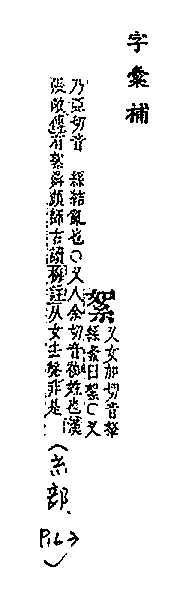 字彙補
絮
又女加切音拏
絲絮曰絮〇又
乃亞切音 絲結亂也〇又人余切音 姓也漢
張敞傳有絮舜顏師古 註从女 非是
(糸部,
P.16